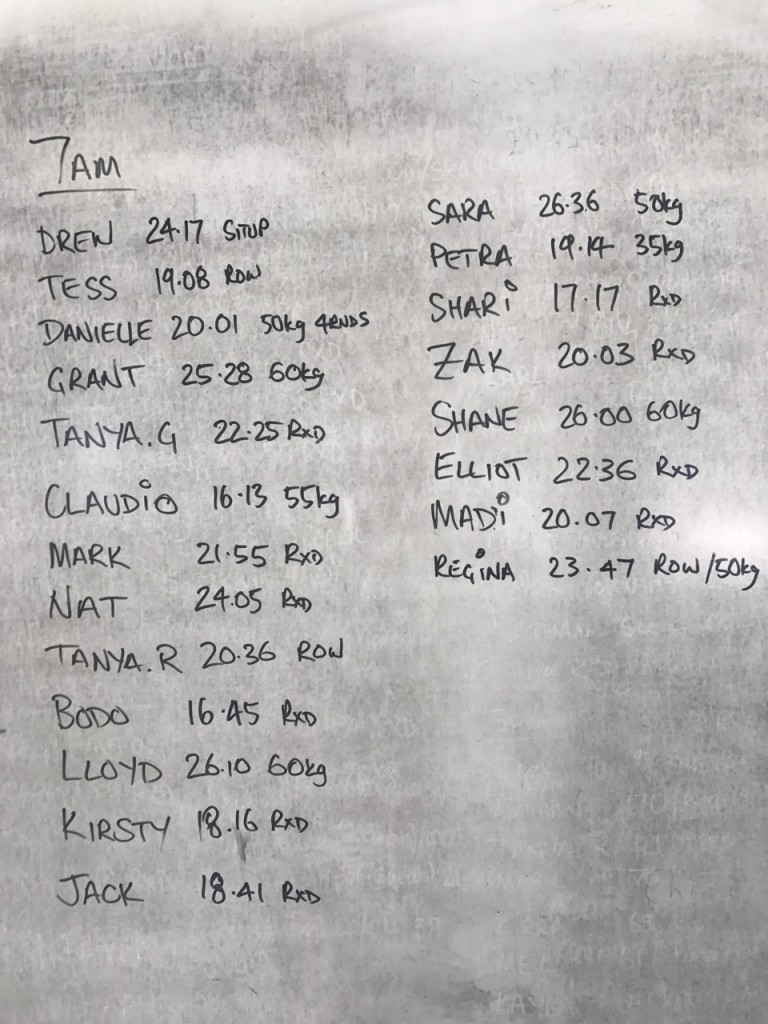 7AM
DREW 24.17 SITUP
TESS 19.08 ROW
DANIELLE 20.01 50kg 4RNDS
GRANT 25.28 60kg
TANYA.G 22.25 RXD
CLAUDiO 16.13 55kg
MARK 21.55 RXD
NAT 24.05 RXD
TANYA.R 20.36 ROW
BODO 16.45 RXD
LLOYD 26.10 60kg
KIRSTY 18.16 RXD
JACK 18.41 RXD
SARA 26.36 50kg
PETRA 19.14 35kg
SHARi 17.17 RXD
ZAK 20.03 RXD
SHANE 26.00 60kg
ELLIOT 22.36 RXD
MADi 20.07 RXD
REGiNA 23.47 ROW/50kg